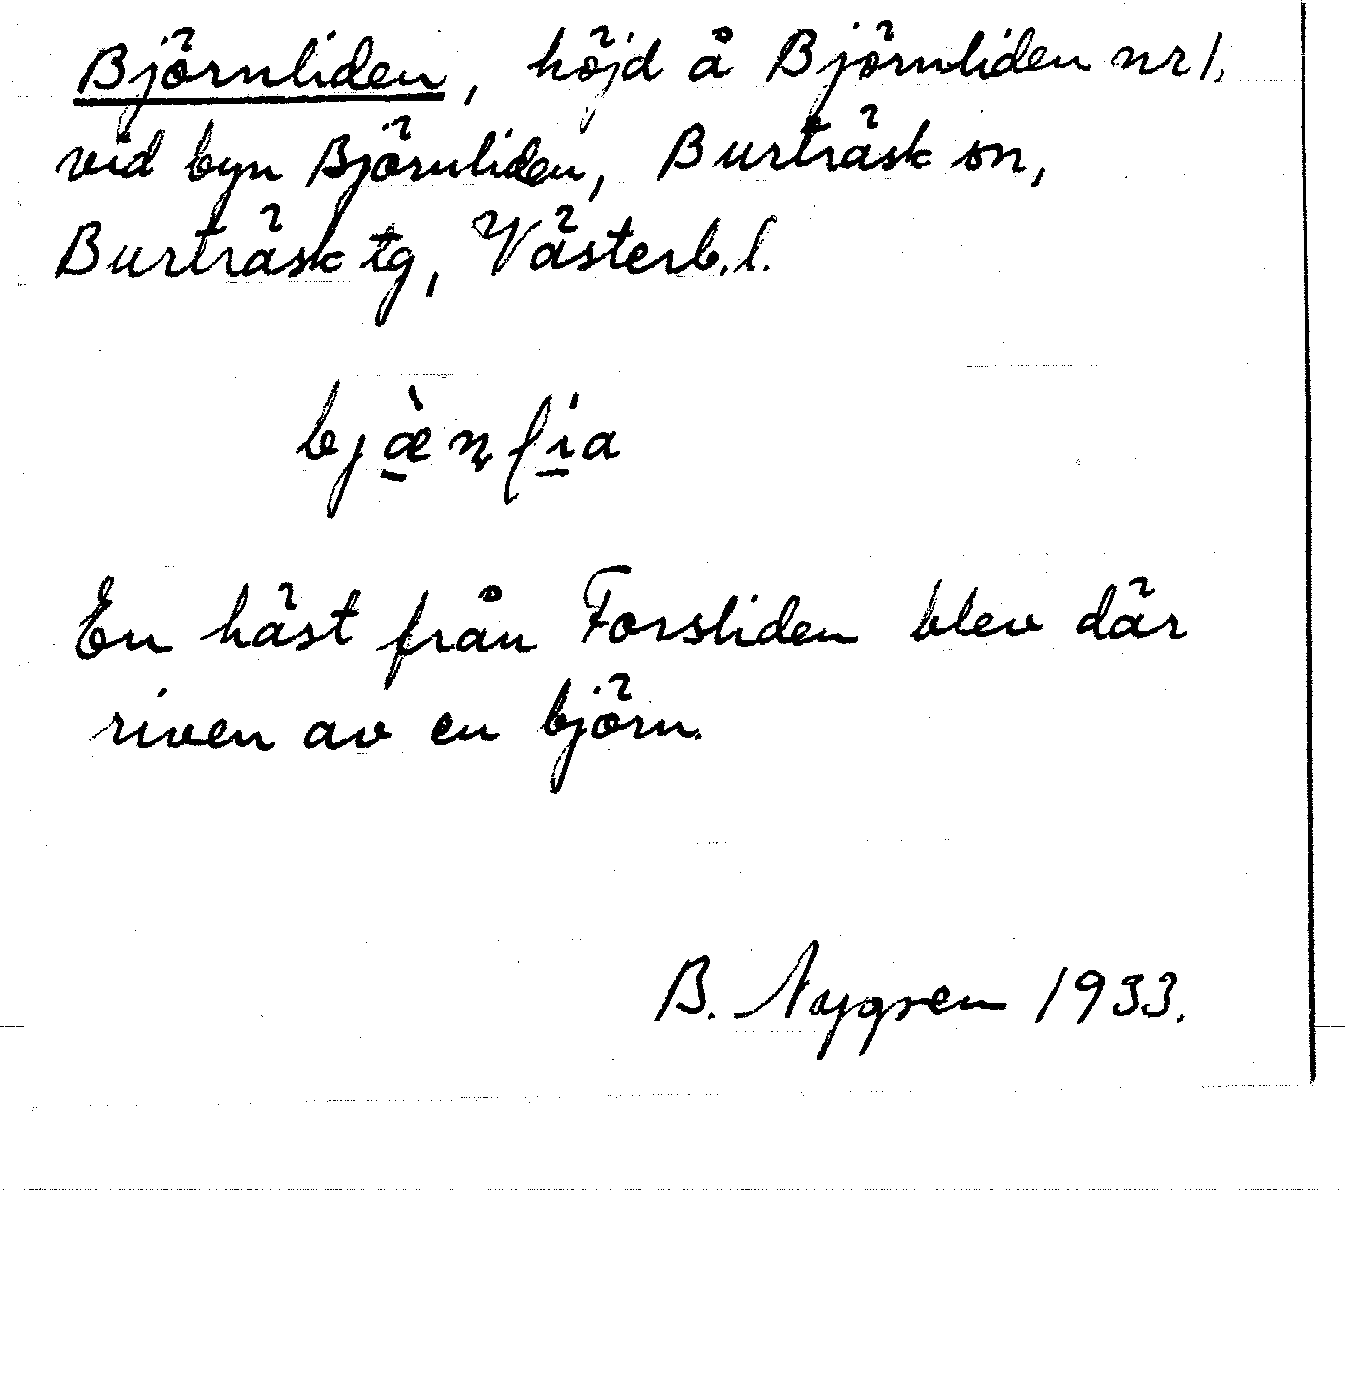 Björnliden, höjd å Björnliden nr 1,
vid byn Björnliden, Burträsk sn,
Burträsk tg, Västerb. l.
En häst från Forsliden blev där
riven av en björn.
B. Nygren 1933.